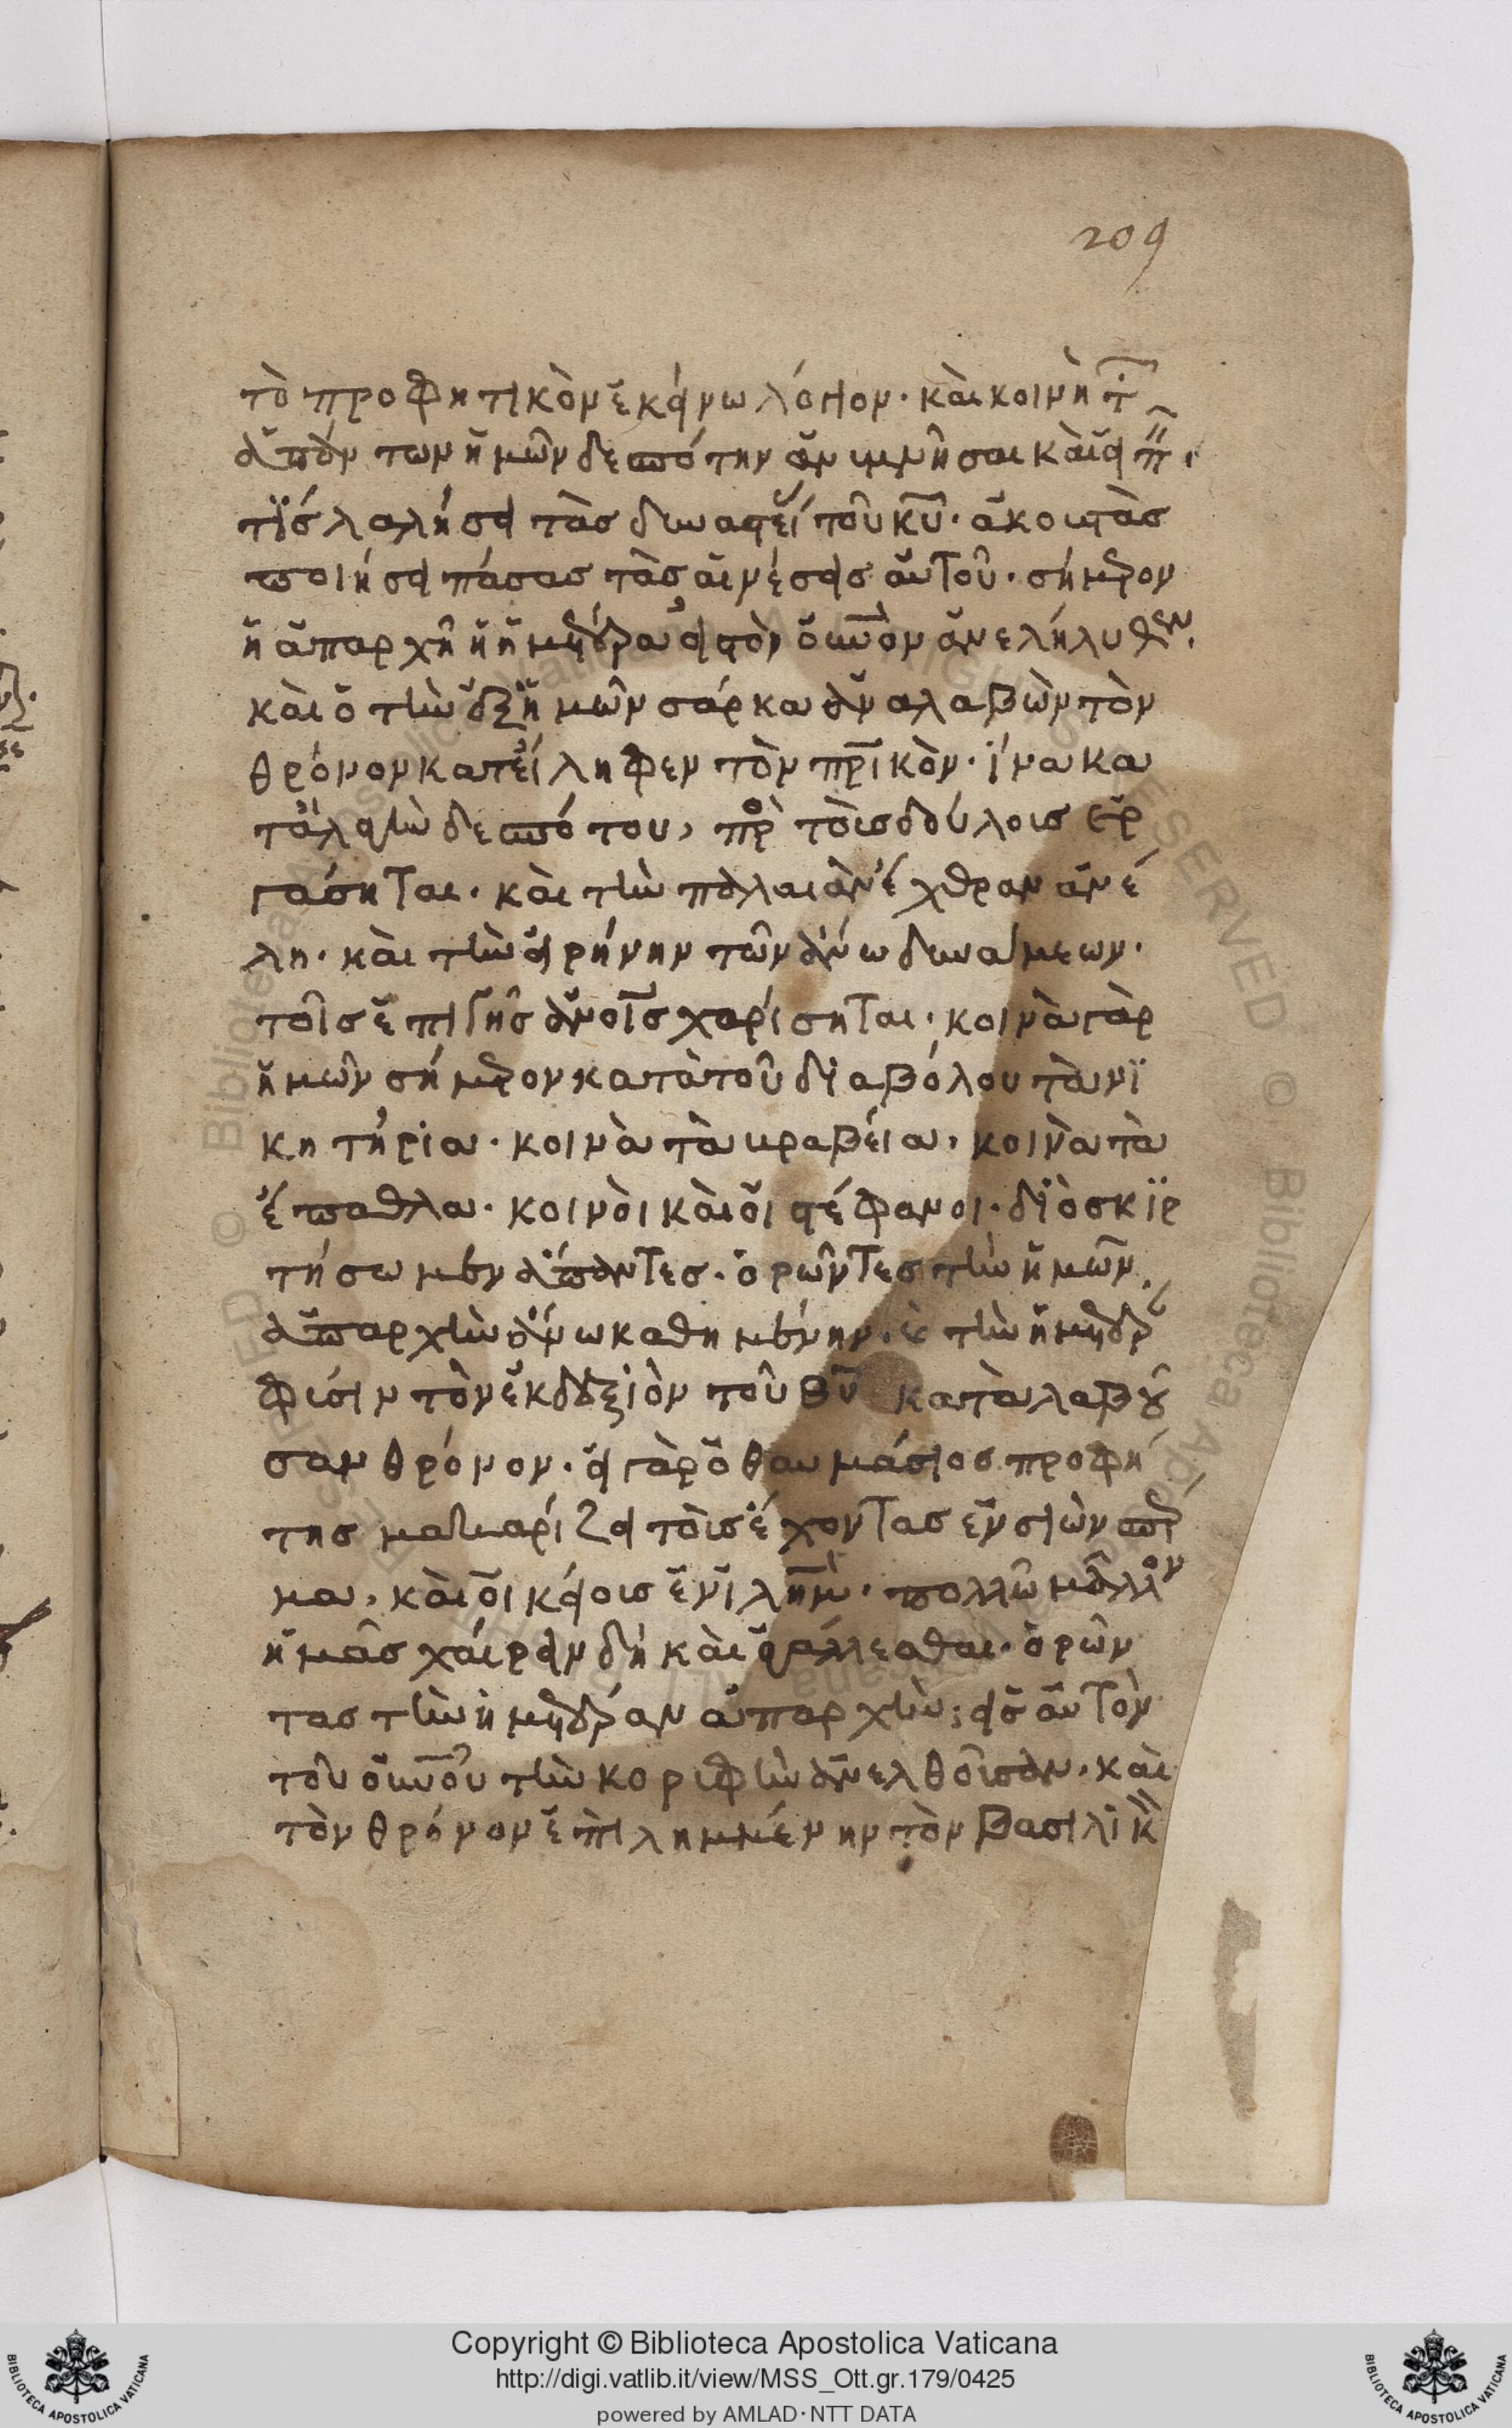 209
τὸ προφητικὸν ἐκείνω λόγιον· καὶ κοινὴ τ
ἁπάντων ἡμῶν δεσπότην ἀνυμνῆσαι καὶ εἰπ
τίς λαλήσει τὰς δυναστεί τοῦ κυ· ἀκουτὰς
ποιήσει πάσας τὰς αἰνέσεις αὐτοῦ· σήμερον
ἡ ἀπαρχὴ ἡ ἡμετέρα εἰς τὸν οὐνον ἀνελήλυθεν·
καὶ ὁ τὴν ἐξ ἡμῶν σάρκα ἀναλαβὼν τὸν
θρόνον κατείληφεν τὸν πρικὸν· ἵνα κα
ταλαγὴν δεσπότου, πρ τοῖς δούλοις ἐρ
γάσηται· καὶ τὴν παλαιὰν ἔχθραν ἀνέ
λη· καὶ τὴν εἰρήνην τῶν ἄνω δυνάμεων·
τοῖς ἐπι γῆς ἀνοις χαρίσηται· κοινὰ γὰρ
ἡμῶν σήμερον κατὰ τοῦ διαβόλου τὰ νι
κητήρια· κοινὰ τὰ βραβεία· κοινὰ τὰ
ἔπαθλα· κοινοὶ καὶ οἱ στέφανοι· διὸ σκιρ
τήσωμεν ἅπαντες· ὁρῶντες τὴν ἡμῶν
ἀπαρχὴν ἄνω καθημένην· κ τὴν ἡμετέρ
φύσιν τὸν ἐκ δεξιὸν τοῦ θυ καταλαβοῦ
σαν θρόνον· εἰ γὰρ ὁ θαυμάσιος προφή
της μακαρίζει τοῖς ἔχοντας ἐν σιὼν σπέρ
μα· καὶ οἰκείοις ἐν ιλημ· πολλῶ μᾶλλον
ἡμᾶς χαίρειν δὴ καὶ ἀγάλλεσθαι· ὁρῶν
τας τὴν ἡμετέραν ἀπαρχὴν· εἰς αὐτὸν
τοῦ οὐνοῦ τὴν κορυφὴν ἀνελθοῖσαν· καὶ
τὸν θρόνον ἐπιλημμένην τὸν βασιλικ
Copyright © Biblioteca Apostolica Vaticana
http://digi.vatlib.it/view/MSS_Ott.gr.179/0425
powered by AMLAD·NTT DATA